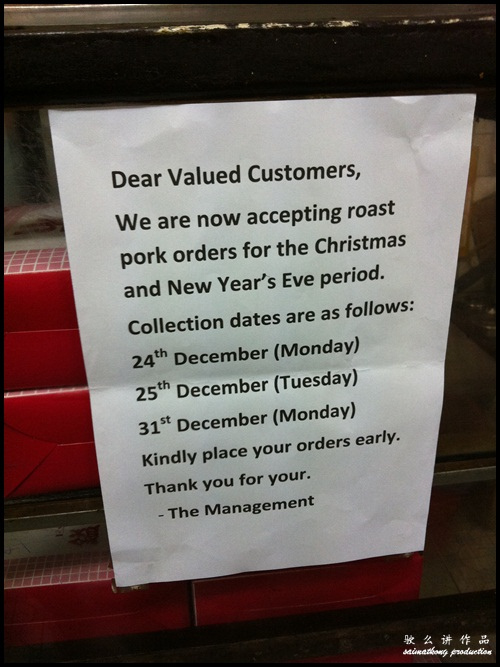 Dear Valued Customers,
We are now accepting roast
pork orders for the Christmas
and New Year's Eve period.
Collection dates are as follows:
24th December (Monday)
25th December (Tuesday)
31st December (Monday)
Kindly place your orders early.
Thank you for your.
- The Management
驶么讲作品
saimatkong production